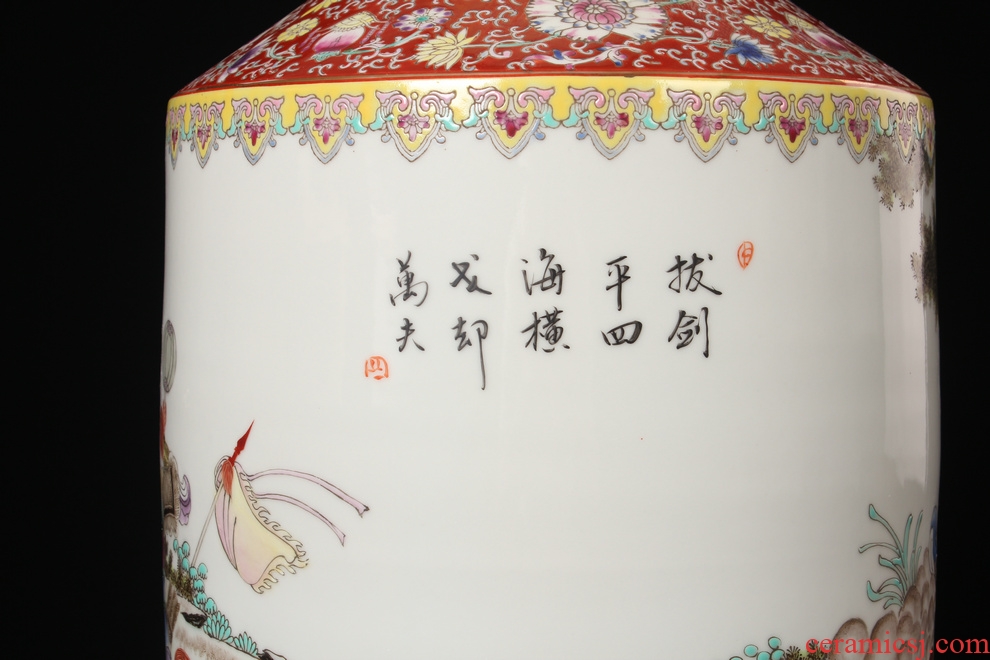 拔剑
平四
海横
戈却
萬夫
ceramicsj.com